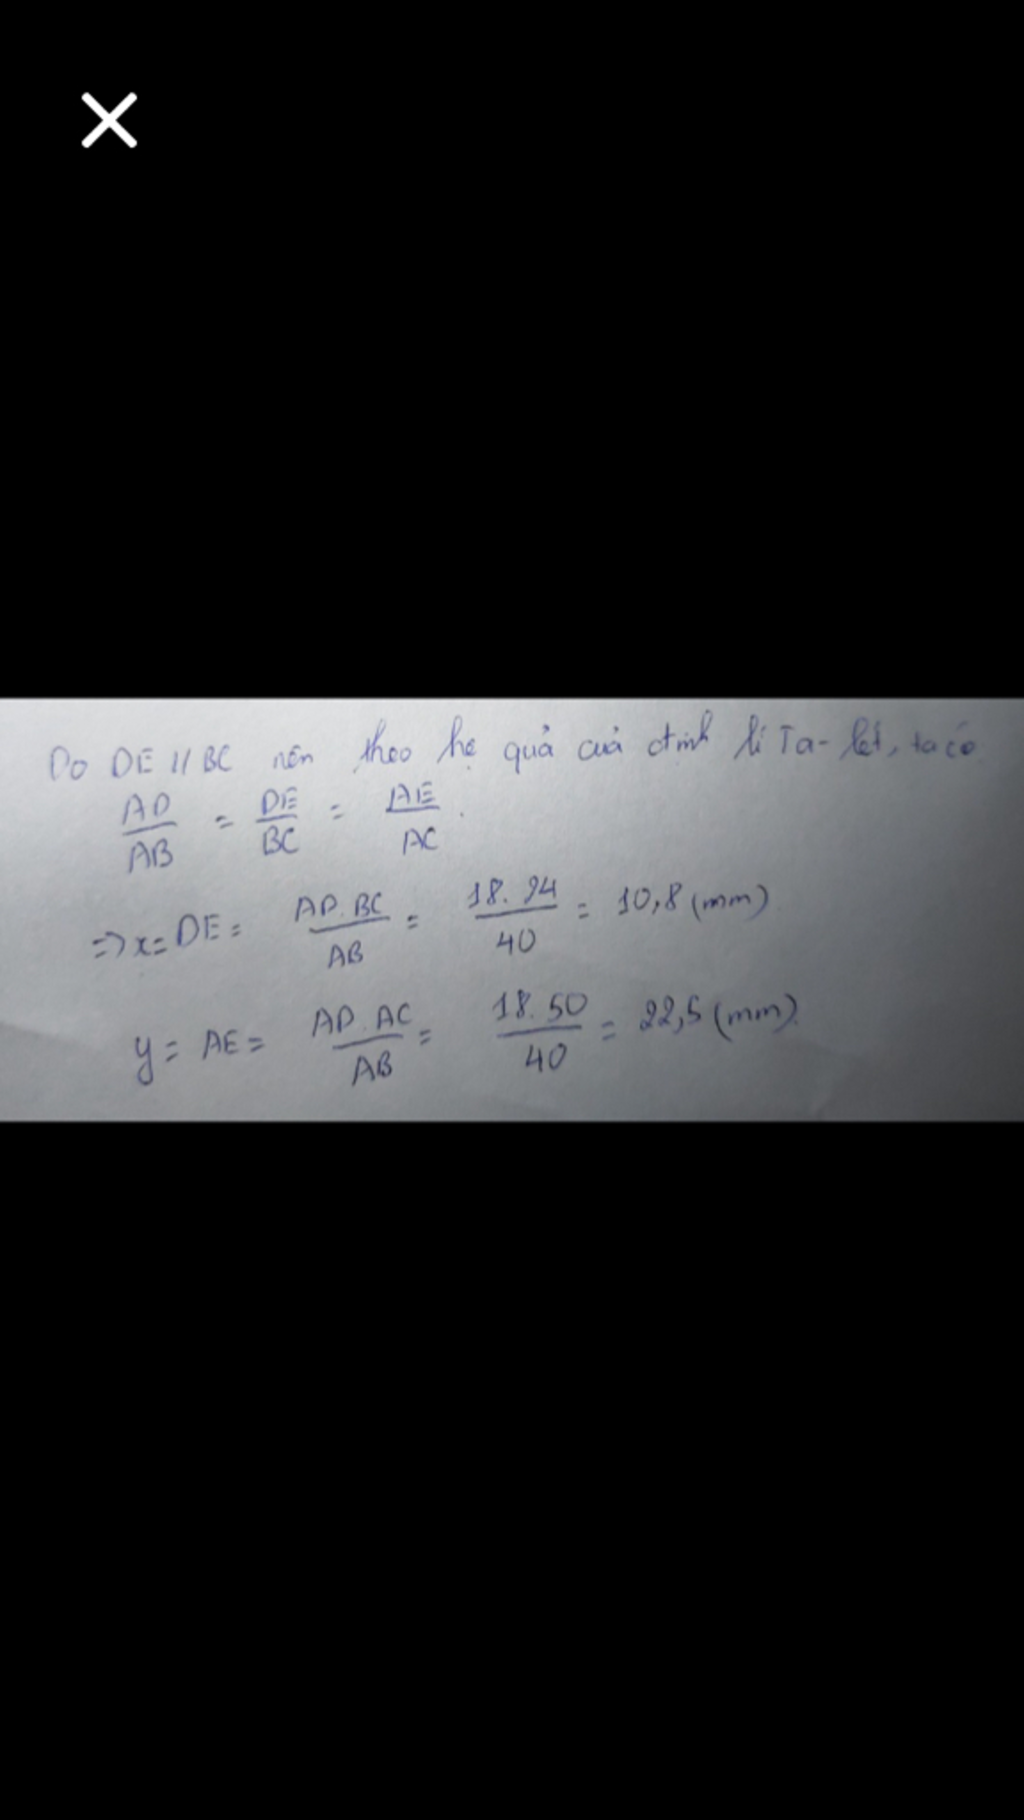 Do DE // BC nên theo hệ quả của định lí Ta-lét, ta có
AD/AB = DE/BC = AE/AC.
=> x = DE = AD.BC/AB = 18.24/40 = 10,8 (mm)
y = AE = AD.AC/AB = 18.50/40 = 22,5 (mm).